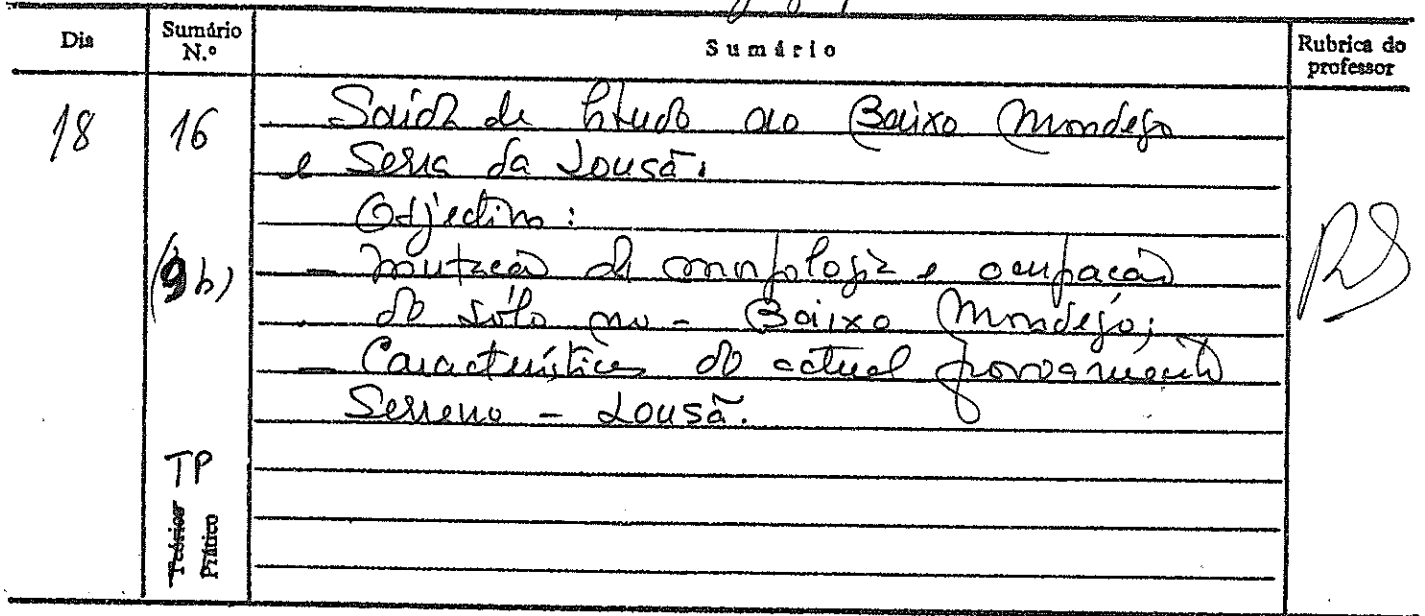 Dia
Sumário N.º
Sumário
Rubrica do professor
18
16
Saída de Estudo ao Baixo Mondego
e Serra da Lousã.
Objectivo:
(9h)
- mutação da morfologia e ocupação
do sólo no - Baixo Mondego;
- Características do actual povoamento
Serrano - Lousã.
RS
TP
Teórico
Prático